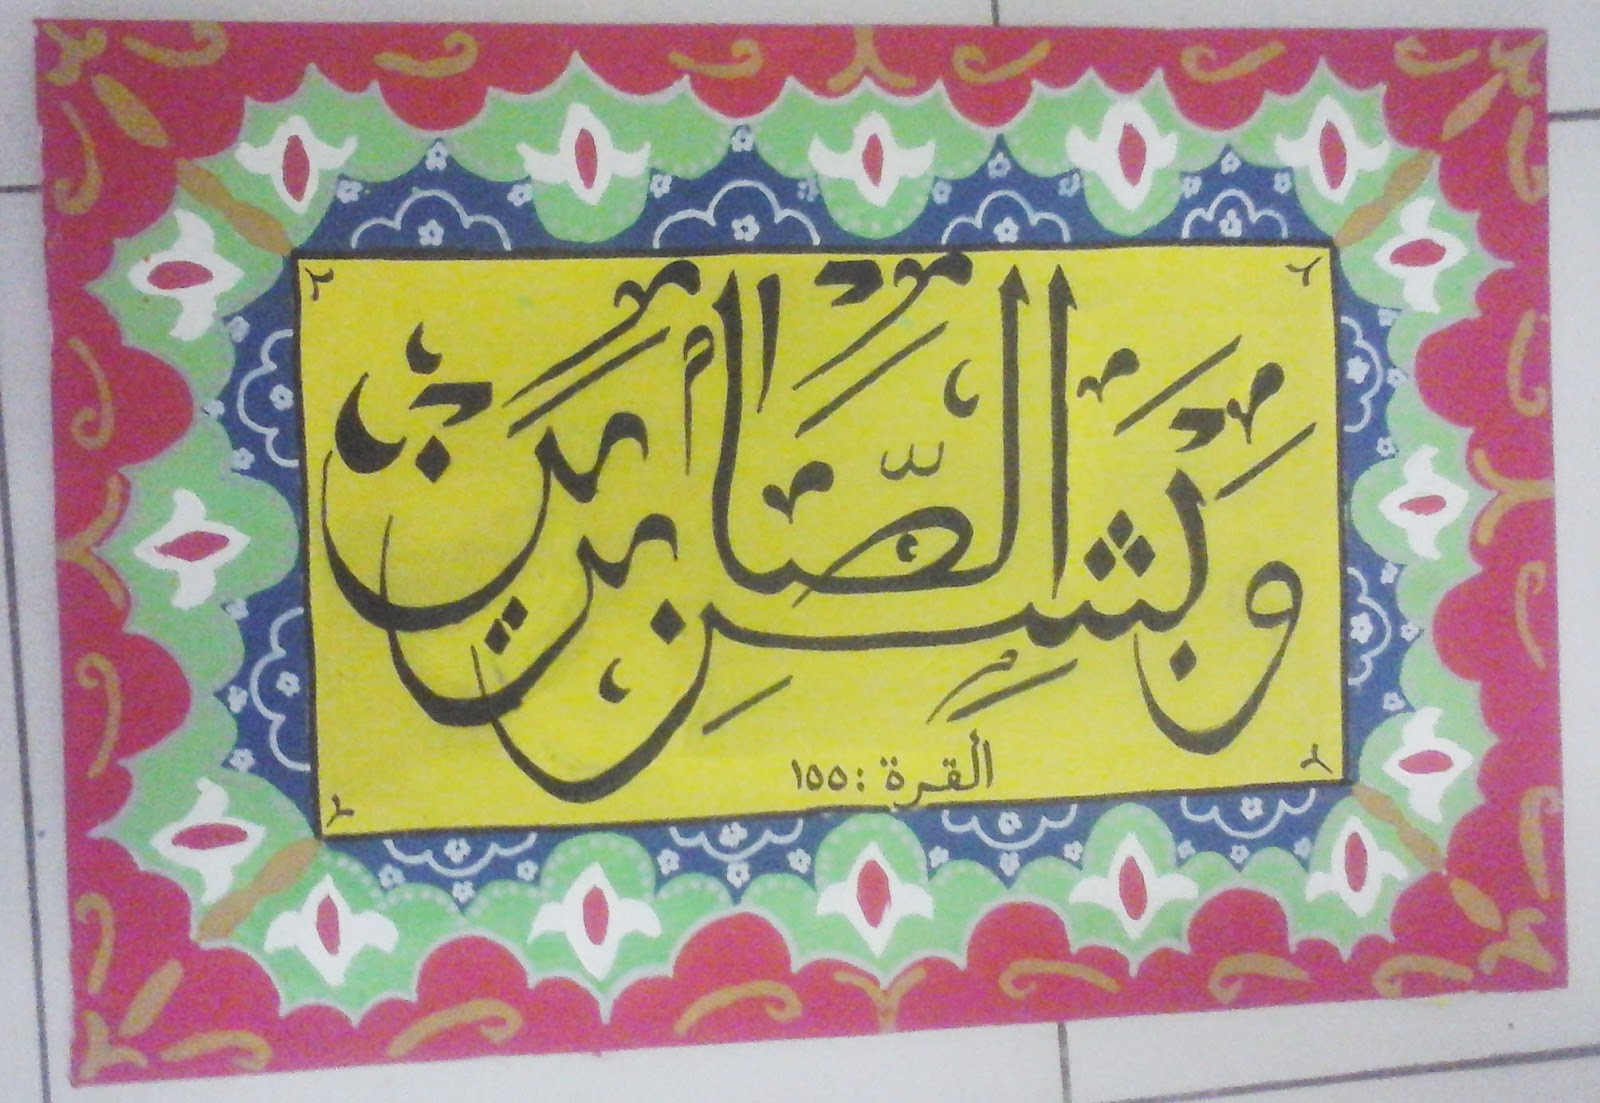 وَبَشِّرِ الصَّابِرِينَ
القرة : ١٥٥